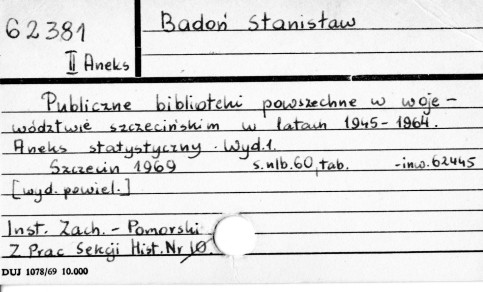 62381
II Aneks
Badoń Stanisław
Publiczne biblioteki powszechne w woje-
wództwie szczecińskim w latach 1945-1964.
Aneks statystyczny. Wyd. 1.
Szczecin 1969 s. nlb. 60, tab. -inw. 62445
[wyd. powiel.]
Inst. Zach. - Pomorski
Z Prac Sekcji Hist. Nr 10.
DUJ 1078/69 10.000